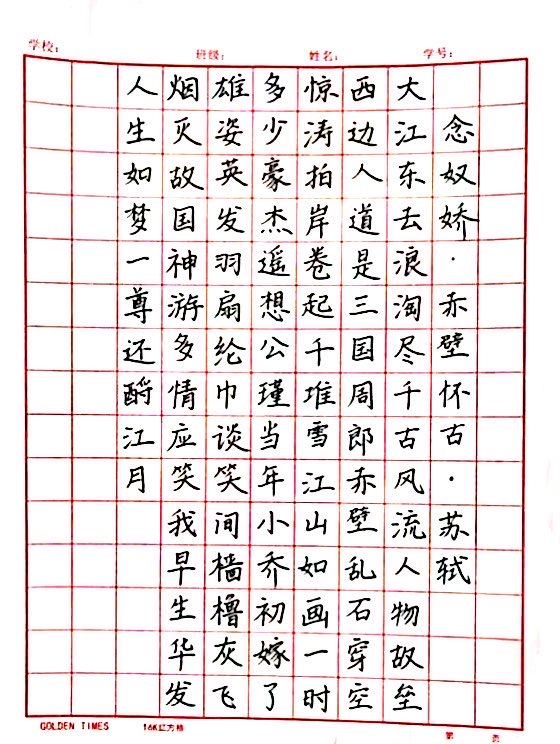 学校：
班级：
姓名：
学号：
念奴娇·赤壁怀古·苏轼
大江东去浪淘尽千古风流人物故垒
西边人道是三国周郎赤壁乱石穿空
惊涛拍岸卷起千堆雪江山如画一时
多少豪杰遥想公瑾当年小乔初嫁了
雄姿英发羽扇纶巾谈笑间樯橹灰飞
烟灭故国神游多情应笑我早生华发
人生如梦一尊还酹江月
GOLDEN TIMES
16K红方格
第 页